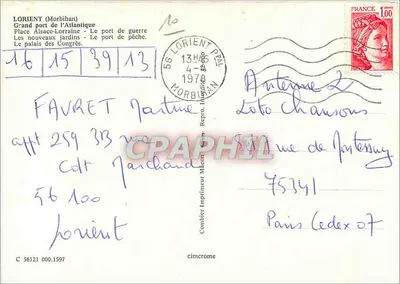 LORIENT (Morbihan)
Grand port de l'Atlantique
Place Alsace-Lorraine - Le port de guerre
Les nouveaux jardins - Le port de pêche.
Le palais des Congrès.
16 15 39 13
FAVRET Martine
appt 259 313 rue
Colt Marchand
56 100
Lorient
C 56121 000.1597
10
56 LORIENT PPAL
13H45
4-4
1978
MORBIHAN
1,00
Antenne 2
Loto Chansons
rue de Montessuy
75341
Paris Cedex 07
Combier Imprimeur Macon
cimcrome
CPAPHIL